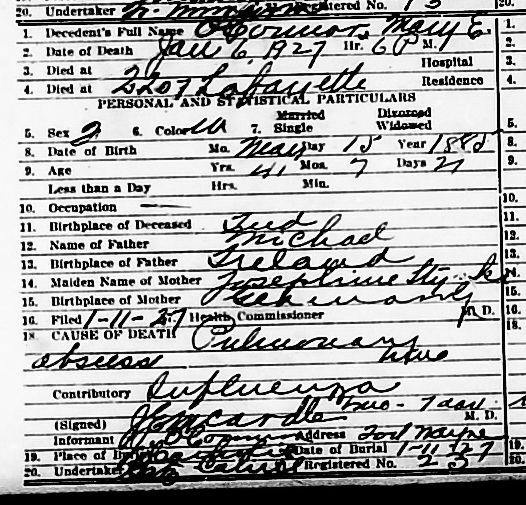 20. Undertaker Registered No.
1. Decedent's Full Name O'Connor, Mary E.
2. Date of Death Jan 6, 1927 Hr. 6 P M.
3. Died at Hospital
4. Died at 2207 Lafayette Residence
PERSONAL AND STATISTICAL PARTICULARS
5. Sex 2 6. Color W 7. Married Single Divorced Widowed
8. Date of Birth Mo. May Day 15 Year 1885
9. Age Yrs. 41 Mos. 7 Days 21
Less than a Day Hrs. Min.
10. Occupation —
11. Birthplace of Deceased Ind
12. Name of Father Michael
13. Birthplace of Father Ireland
14. Maiden Name of Mother Josephine
15. Birthplace of Mother Germany
16. Filed 1-11-27 Health Commissioner M. D.
18. CAUSE OF DEATH Pulmonary
abscess
Contributory Influenza
(Signed) M. D.
Informant O'Connor Address Fort Wayne
19. Place of Burial Date of Burial 1-11-27
20. Undertaker Registered No. 23